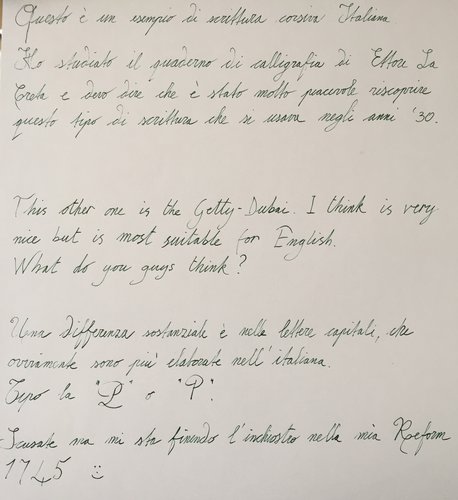 Questo è un esempio di scrittura corsiva Italiana.
Ho studiato il quaderno di calligrafia di Ettore La
Creta e devo dire che è stato molto piacevole riscoprire
questo tipo di scrittura che si usava negli anni '30.
This other one is the Getty-Dubai. I think is very
nice but is most suitable for English.
What do you guys think?
Una differenza sostanziale è nelle lettere capitali, che
ovviamente sono più elaborate nell'italiana.
Tipo la "P" o "P".
Scusate ma mi sta finendo l'inchiostro nella mia Roeform
1745 :)